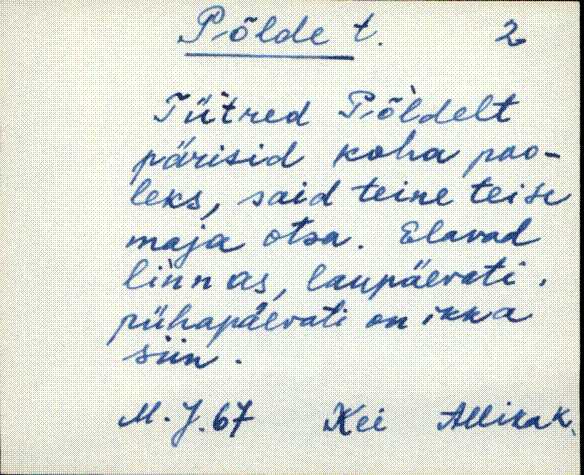 Põlde t. 2
Tütred Põ̀ldelt
pärisid koha poo-
leks, said teine teise
maja otsa. Elavad
lìnnas, laupäevati,
pühapäevati on ikka
siin.
M. J. 67 Kei Allikak.